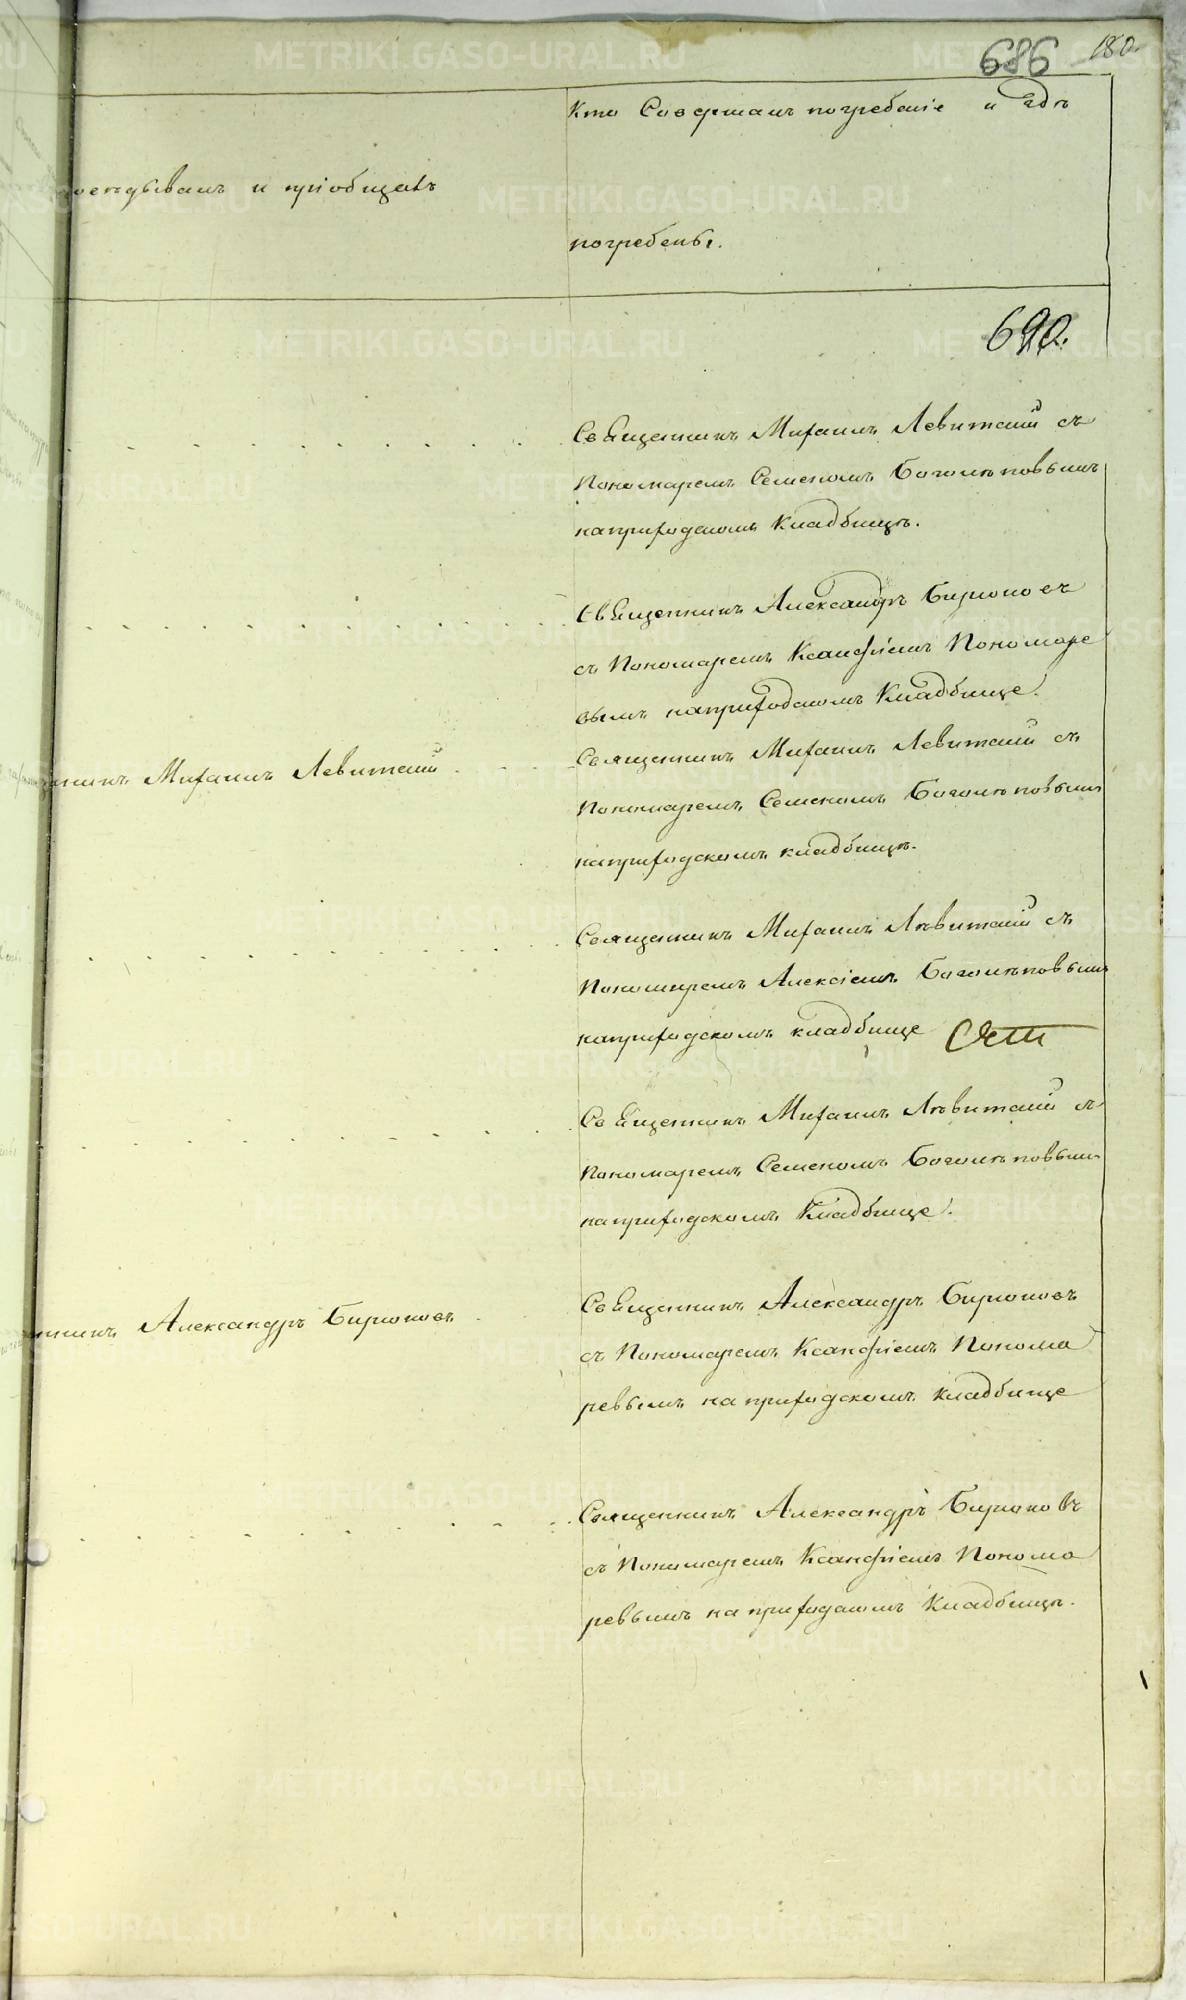 686 180
Кто Совершалъ погребеніе и гдѣ
исповѣдывалъ и пріобщалъ
погребены.
690.
Священникъ Михаилъ Левитскій съ
Пономаремъ Семеномъ Боголѣповымъ
на приходскомъ Кладбищѣ.
Священникъ Александръ Бирюковъ
съ Пономаремъ Ксанфіемъ Пономаре
вымъ на приходскомъ Кладбище.
Священникъ Михаилъ Левитскій съ
щенникъ Михаилъ Левитскій
Пономаремъ Семеномъ Боголѣповымъ
на приходскомъ кладбищѣ.
Священникъ Михаилъ Лѣвитскій съ
Пономаремъ Алексіемъ Боголѣповымъ
на приходскомъ кладбище
Священникъ Михаилъ Лѣвитскій съ
Пономаремъ Семеномъ Боголѣповымъ
на приходскомъ Кладбище.
Священникъ Александръ Бирюковъ
нникъ Александръ Бирюковъ
съ Пономаремъ Ксанфіемъ Понома
ревымъ на приходскомъ кладбище
Священникъ Александръ Бирюковъ
съ Пономаремъ Ксанфіемъ Понома
ревымъ на приходскомъ Кладбищѣ.
METRIKI.GASO-URAL.RU